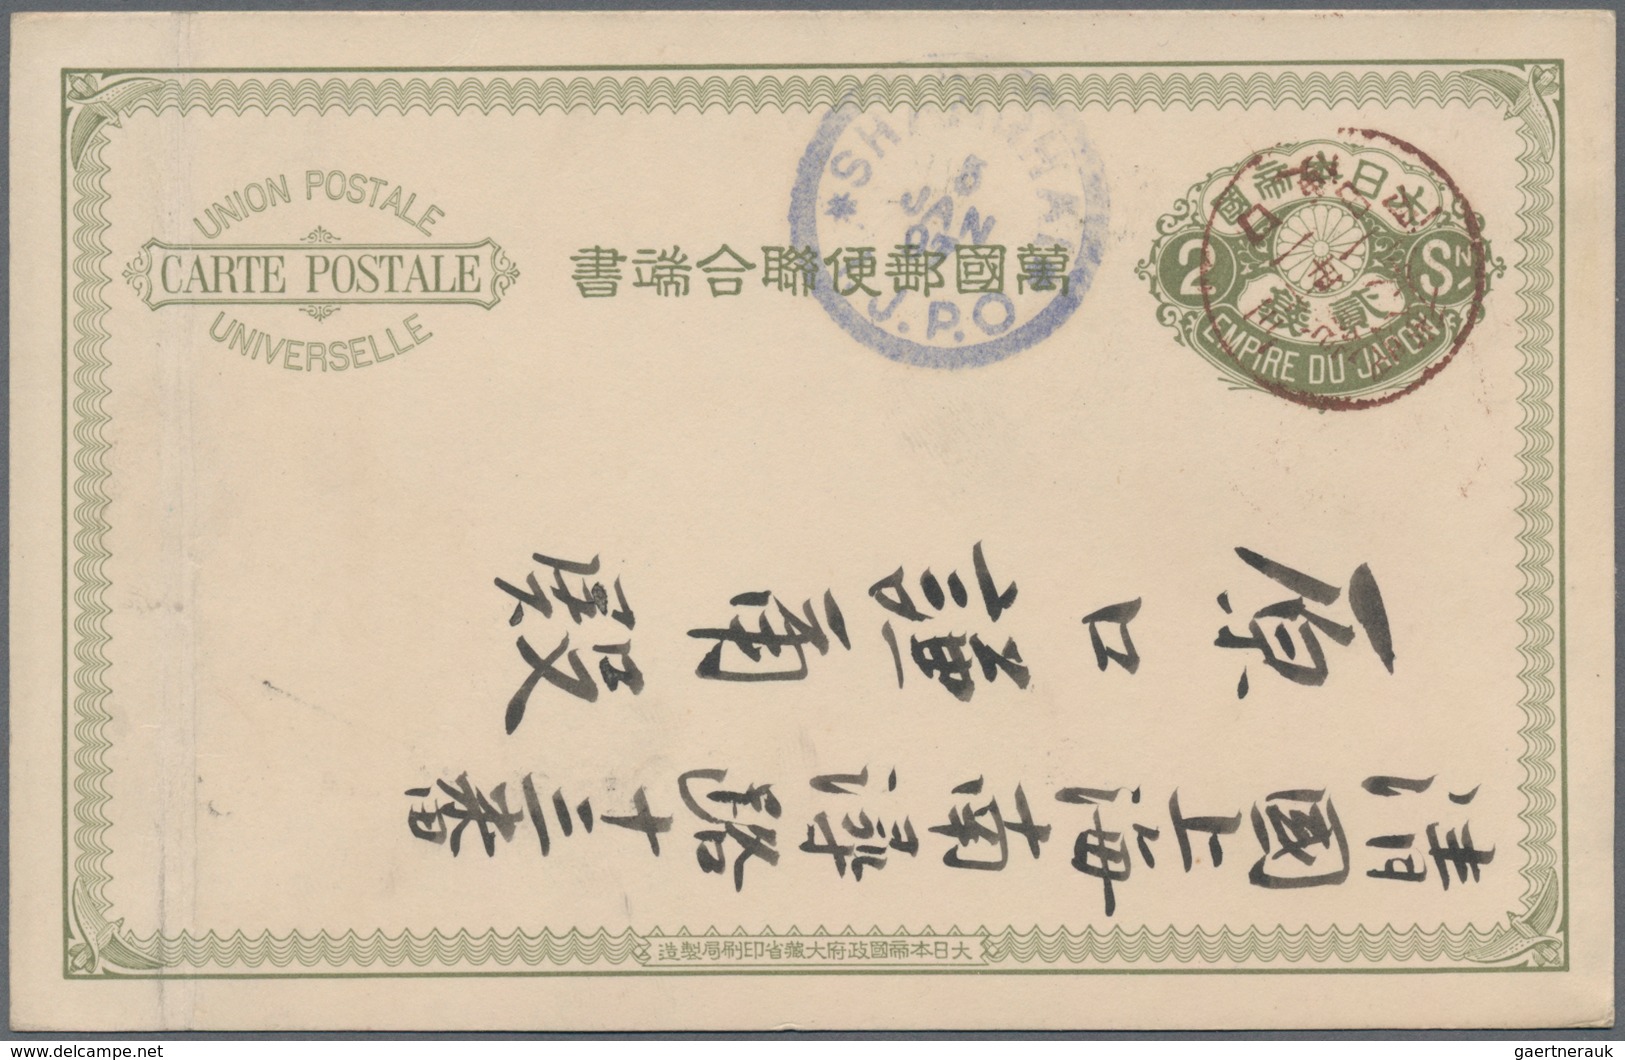 UNION POSTALE
CARTE POSTALE
UNIVERSELLE
萬國郵便聯合端書
大日本帝國
2 Sn
貳錢
EMPIRE DU JAPON
SHANGHAI
5
JAN
97
J.P.O
清國上海南潯路十三番
原口謹一
殿
大日本帝國政府大藏省印刷局製造
gaertnerauk